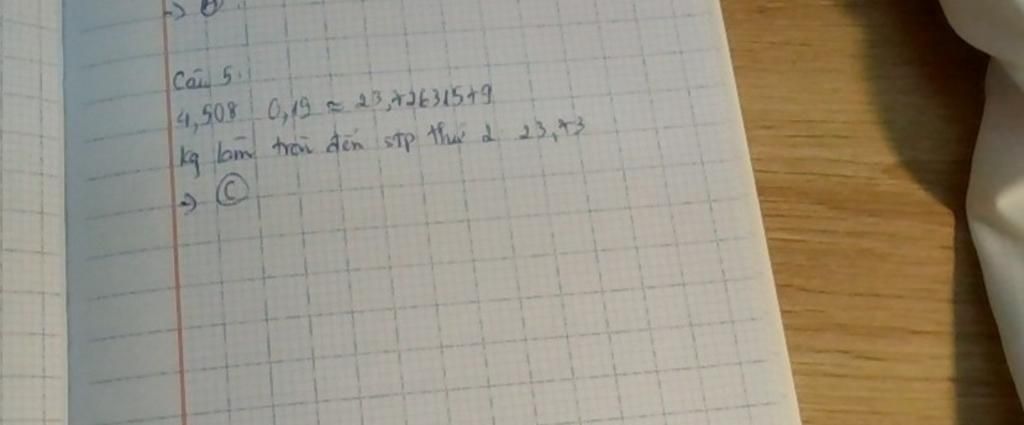 Câu 5.
4,508 0,19 ≈ 23,72631579
kq làm tròn đến stp thứ 2 23,73
→ C